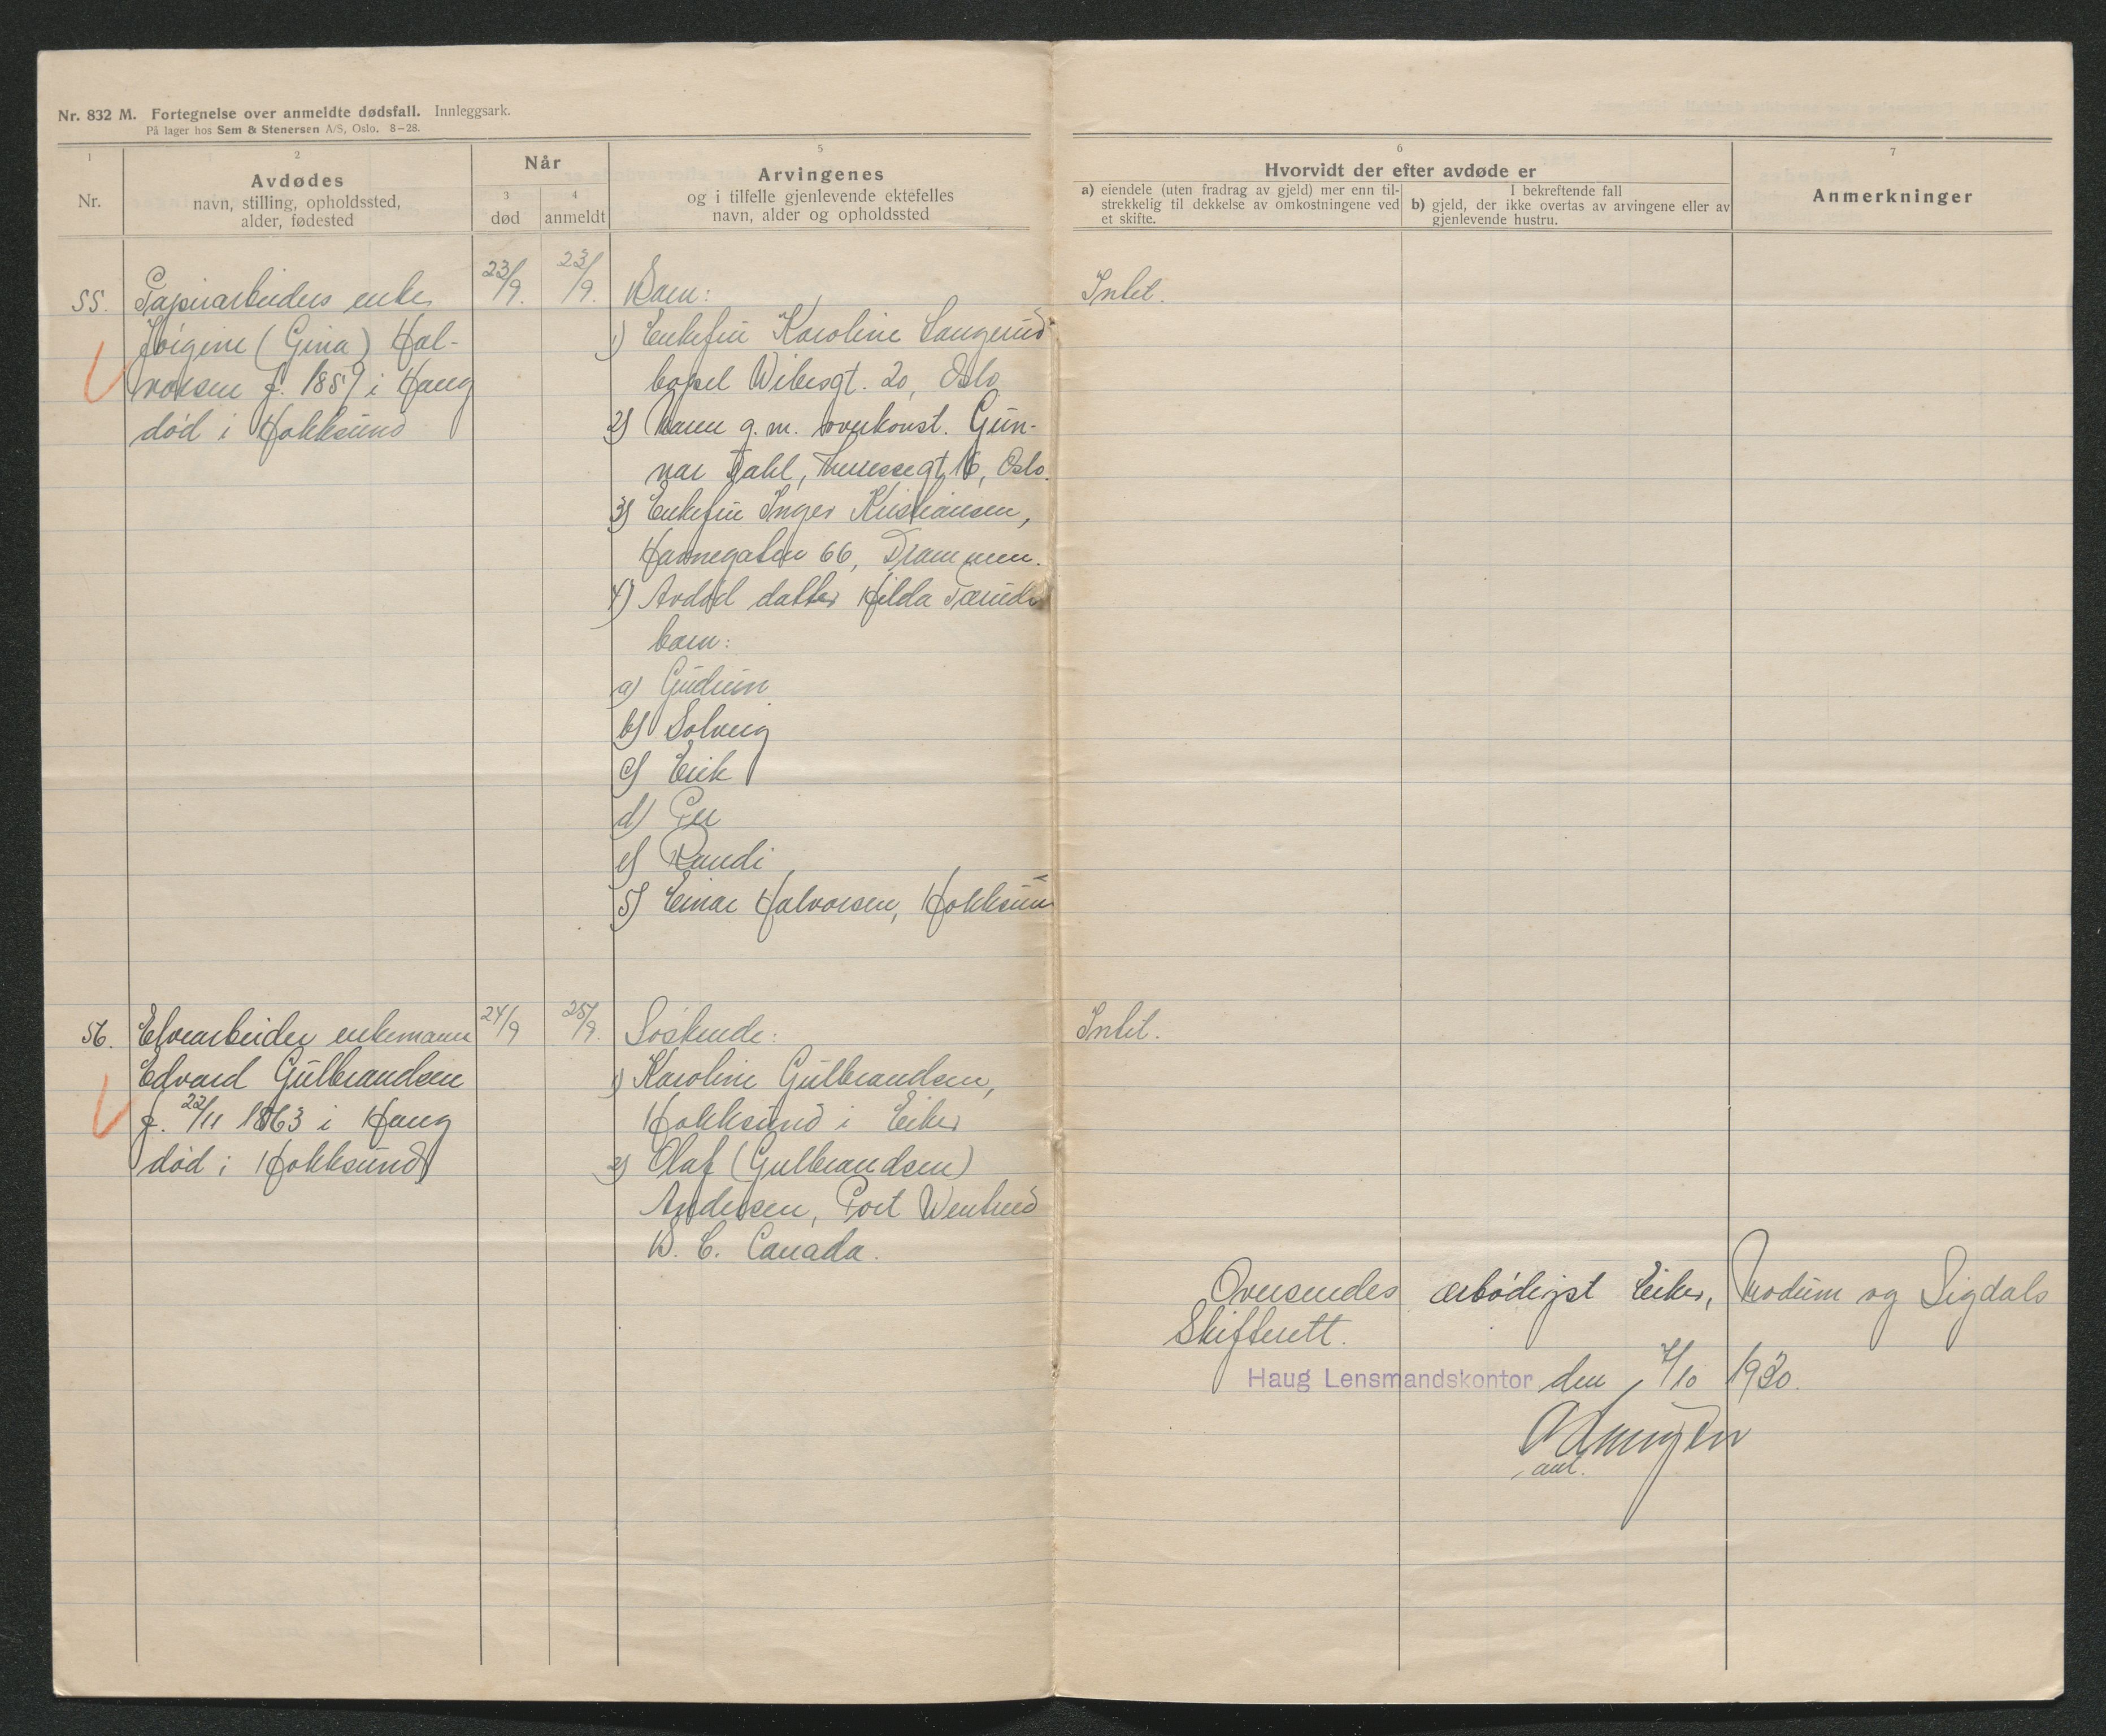 Nr. 832 M. Fortegnelse over anmeldte dødsfall. Innleggsark.
På lager hos Sem & Stenersen A/S, Oslo. 8-28.
1
Nr.
2
Avdødes
navn, stilling, opholdssted,
alder, fødested
Når
3
død
4
anmeldt
5
Arvingenes
og i tilfelle gjenlevende ektefelles
navn, alder og opholdssted
6
Hvorvidt der efter avdøde er
a) eiendele (uten fradrag av gjeld) mer enn til-
strekkelig til dekkelse av omkostningene ved
et skifte.
I bekreftende fall
b) gjeld, der ikke overtas av arvingene eller av
gjenlevende hustru.
7
Anmerkninger
55. Papirarbeiders enke
(Gina) Hal-
vorsen f. 1859 i Haug
død i Hokksund
23/9.
23/9.
Barn:
1) Enkefru Karoline Laugerud
bopel Wibesgt. 20, Oslo
2) Maren g.m. overkonst. Gun-
nar Dahl, Theresesgt 16, Oslo.
3) Enkefru Inger Kristiansen,
Havnegaten 66, Drammen.
4) Avdød datter Hilda
barn:
a) Gudrun
b) Solveig
c) Erik
d) Per
e) Randi
5) Einar Halvorsen, Hokksund
Intet.
56. Elvearbeider enkemann
Edvard Gulbrandsen
f. 22/11 1863 i Haug
død i Hokksund
24/9
25/9.
Søskende:
1) Karoline Gulbrandsen,
Hokksund i Eiker
2) Olaf (Gulbrandsen)
Andersen, Port
B. C. Canada.
Intet.
Oversendes ærbødigst Eiker, Modum og Sigdals
Skifterett.
Haug Lensmandskontor den 7/10 1930.